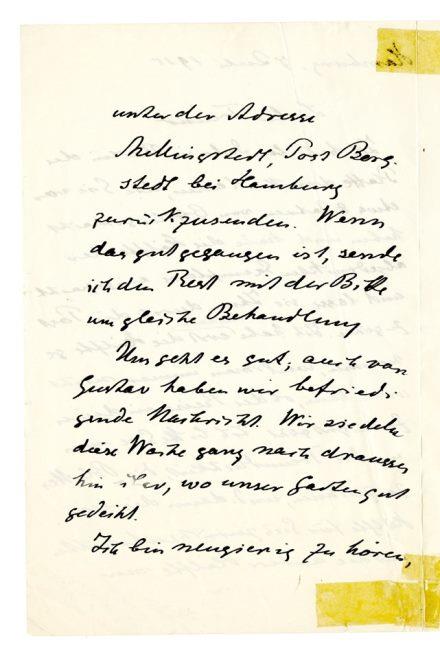 unter der Adresse
Mellingstedt, Post Berg-
stedt bei Hamburg
zurückzusenden. Wenn
das gut gegangen ist, sende
ich den Rest mit der Bitte
um gleiche Behandlung
Uns geht es gut; auch von
Gustav haben wir befriedi-
gende Nachricht. Wir siedeln
diese Woche ganz nach draussen
hin über, wo unser Garten gut
gedeiht.
Ich bin neugierig zu hören,